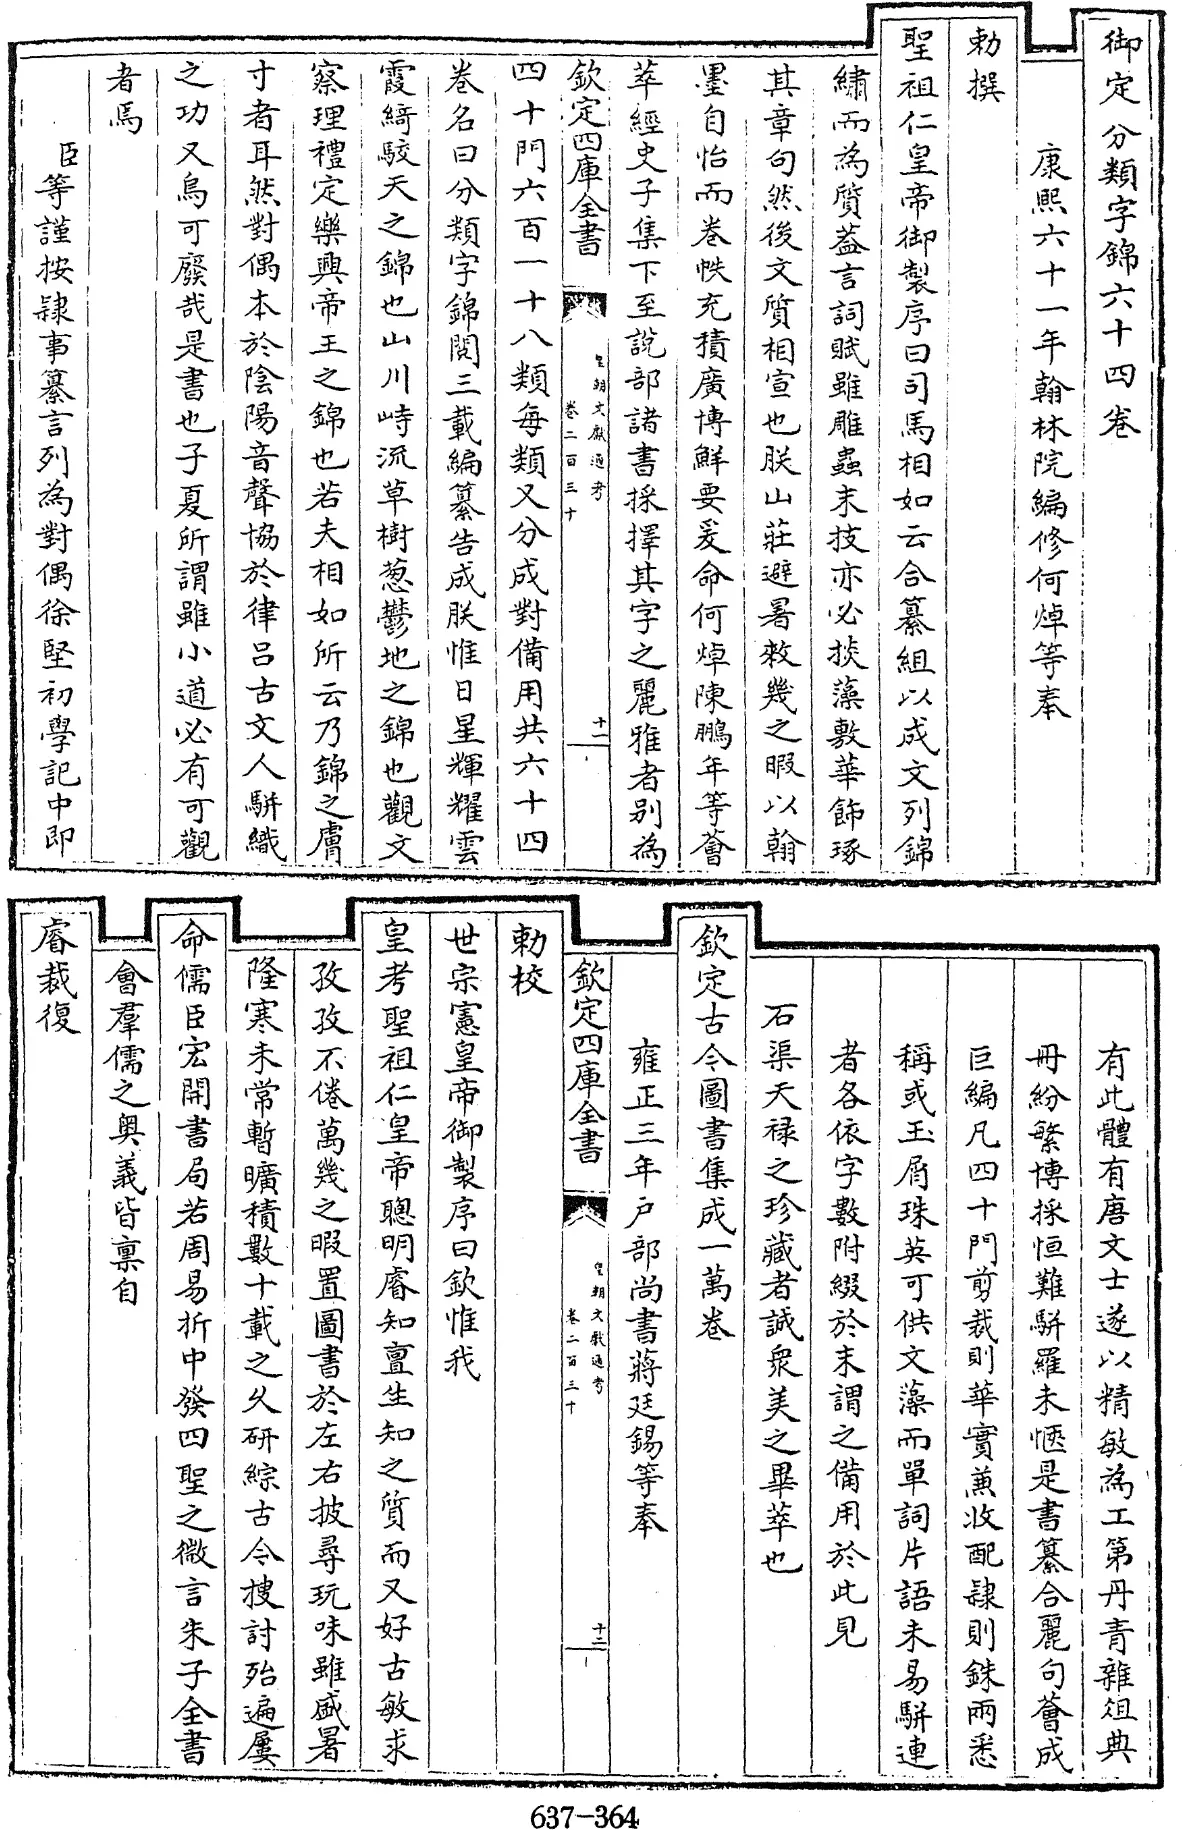 御定分類字錦六十四巻
康熙六十一年翰林院編修何焯等奉
勅撰
聖祖仁皇帝御製序曰司馬相如云合纂組以成文列錦
繡而為質葢言詞賦雖雕蟲末技亦必掞藻敷華飾琢
其章句然後文質相宣也朕山莊避暑敕幾之暇以翰
墨自怡而巻帙充積廣博鮮要爰命何焯陳鵬年等薈
萃經史子集下至說部諸書採擇其字之麗雅者别為
欽定四庫全書
皇朝文獻通考
巻二百三十
十一
四十門六百一十八類每類又分成對備用共六十四
巻名曰分類字錦閱三載編纂告成朕惟日星輝耀雲
霞綺駮天之錦也山川峙流草樹葱鬱地之錦也觀文
察理禮定樂興帝王之錦也若夫相如所云乃錦之膚
寸者耳然對偶本於陰陽音聲協於律呂古文人騈織
之功又烏可廢哉是書也子夏所謂雖小道必有可觀
者焉
臣等謹按隸事纂言列為對偶徐堅初學記中即
有此體有唐文士遂以精敏為工第丹青雜俎典
冊紛繁博採恒難騈羅未愜是書纂合麗句薈成
巨編凡四十門剪裁則華實兼收配隸則銖兩悉
稱或玉屑珠英可供文藻而單詞片語未易騈連
者各依字數附綴於末謂之備用於此見
石渠天禄之珍藏者誠衆美之畢萃也
欽定古今圖書集成一萬巻
雍正三年戸部尚書蔣廷錫等奉
欽定四庫全書
皇朝文獻通考
巻二百三十
十二
勅校
世宗憲皇帝御製序曰欽惟我
皇考聖祖仁皇帝聰明睿知亶生知之質而又好古敏求
孜孜不倦萬幾之暇置圖書於左右披尋玩味雖盛暑
隆寒未常暫曠積數十載之久研綜古今搜討殆遍屢
命儒臣宏開書局若周易折中發四聖之微言朱子全書
會羣儒之奥義皆稟自
睿裁復
637-364